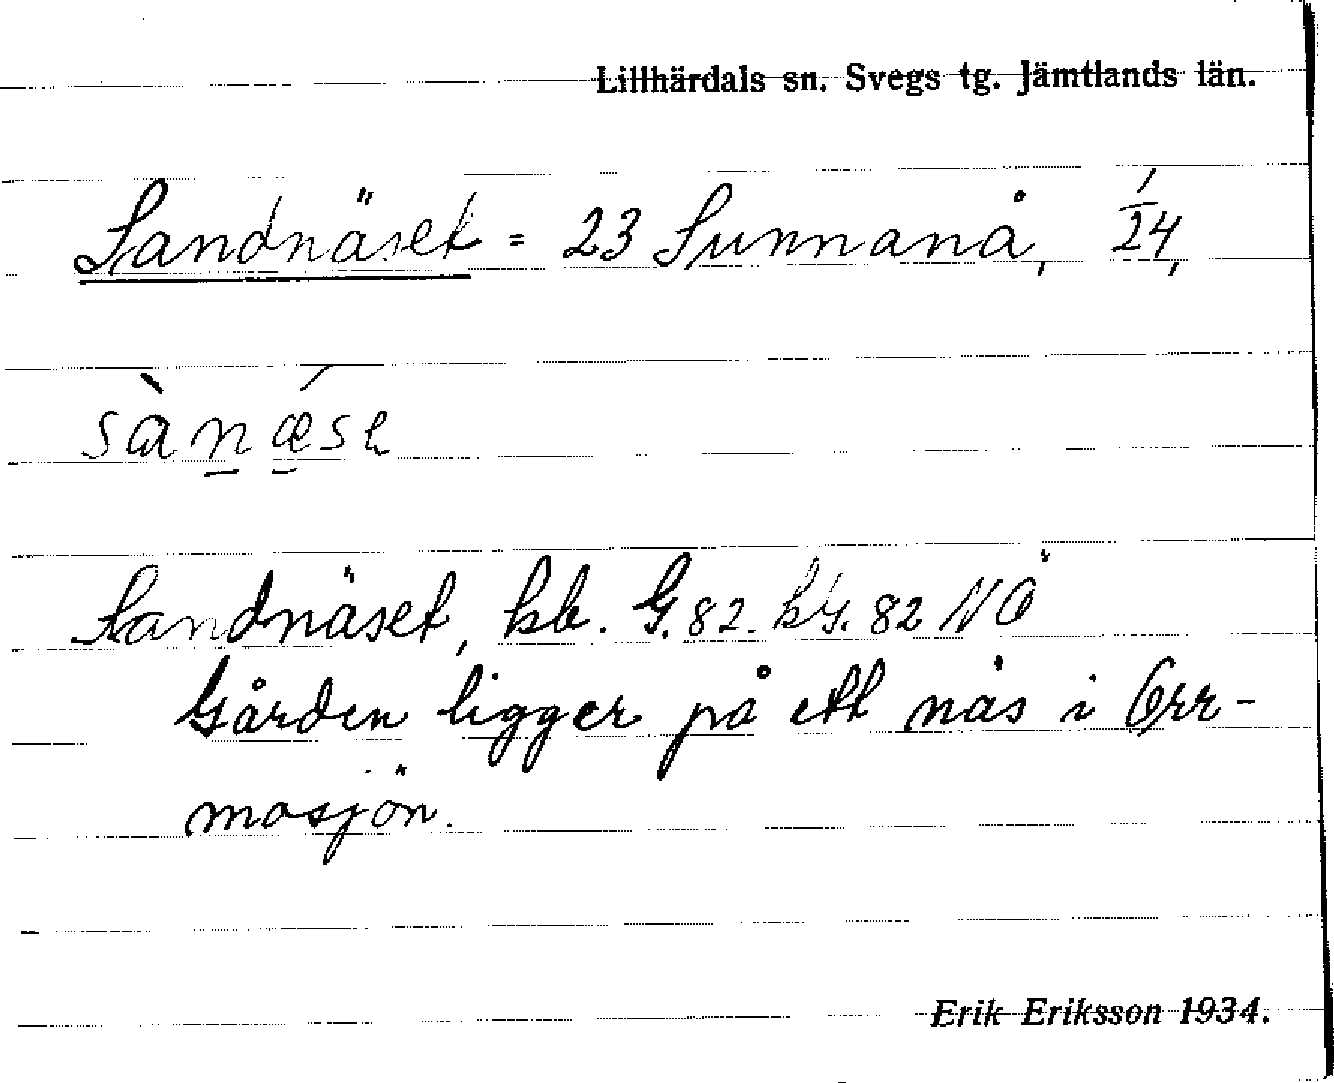 Lillhärdals sn. Svegs tg. Jämtlands län.
Sandnäset = 23 Sunnanå, 1/24,
sànǽse
Sandnäset, kb. G. 82. kG. 82 NO
Gården ligger på ett näs i Orr-
mosjön.
Erik Eriksson 1934.